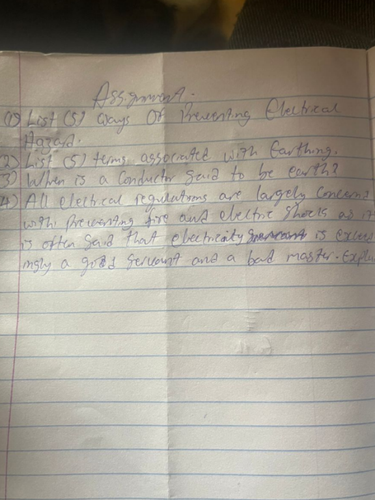 Assignment.
1) List (5) ways Of Preventing Electrical
Hazard.
2) List (5) terms associated with Earthing.
3) When is a Conductor Said to be earth?
4) All electrical regulations are largely Concern
with preventing fire and electric shocks as it
is often Said that electricity is excee
ingly a good Servant and a bad master. Expla